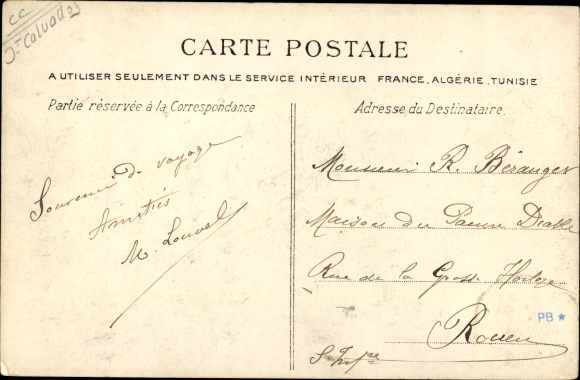 CC
Jt Calvados
CARTE POSTALE
A UTILISER SEULEMENT DANS LE SERVICE INTÉRIEUR FRANCE, ALGÉRIE, TUNISIE
Partie réservée à la Correspondance
Souvenir de voyage
Amitiés
M. Louvel
Adresse du Destinataire.
Monsieur R. Béranger
Maison du Pauvre Diable
Rue de la Grosse Horloge
Rouen
S-Infre
PB